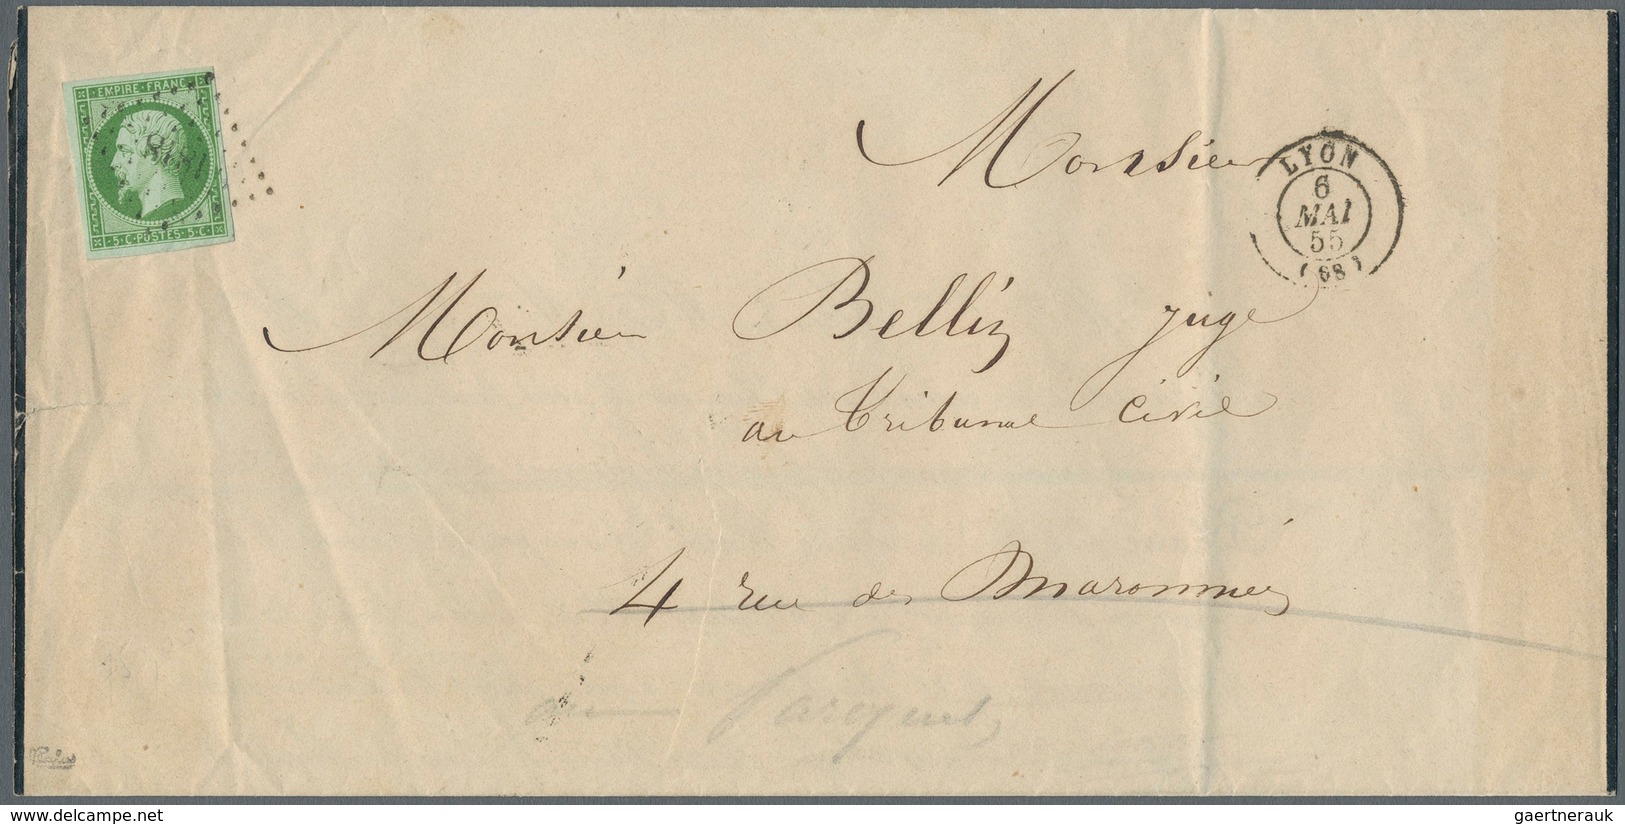 EMPIRE · FRANC
1818
5 · C · POSTES · 5 · C ·
LYON
6
MAI
55
(68)
Monsieur
Monsieur Bellin juge
au tribunal civil
4 rue des Maronniers
au Parquet
delcampe.net
gaertnerauk